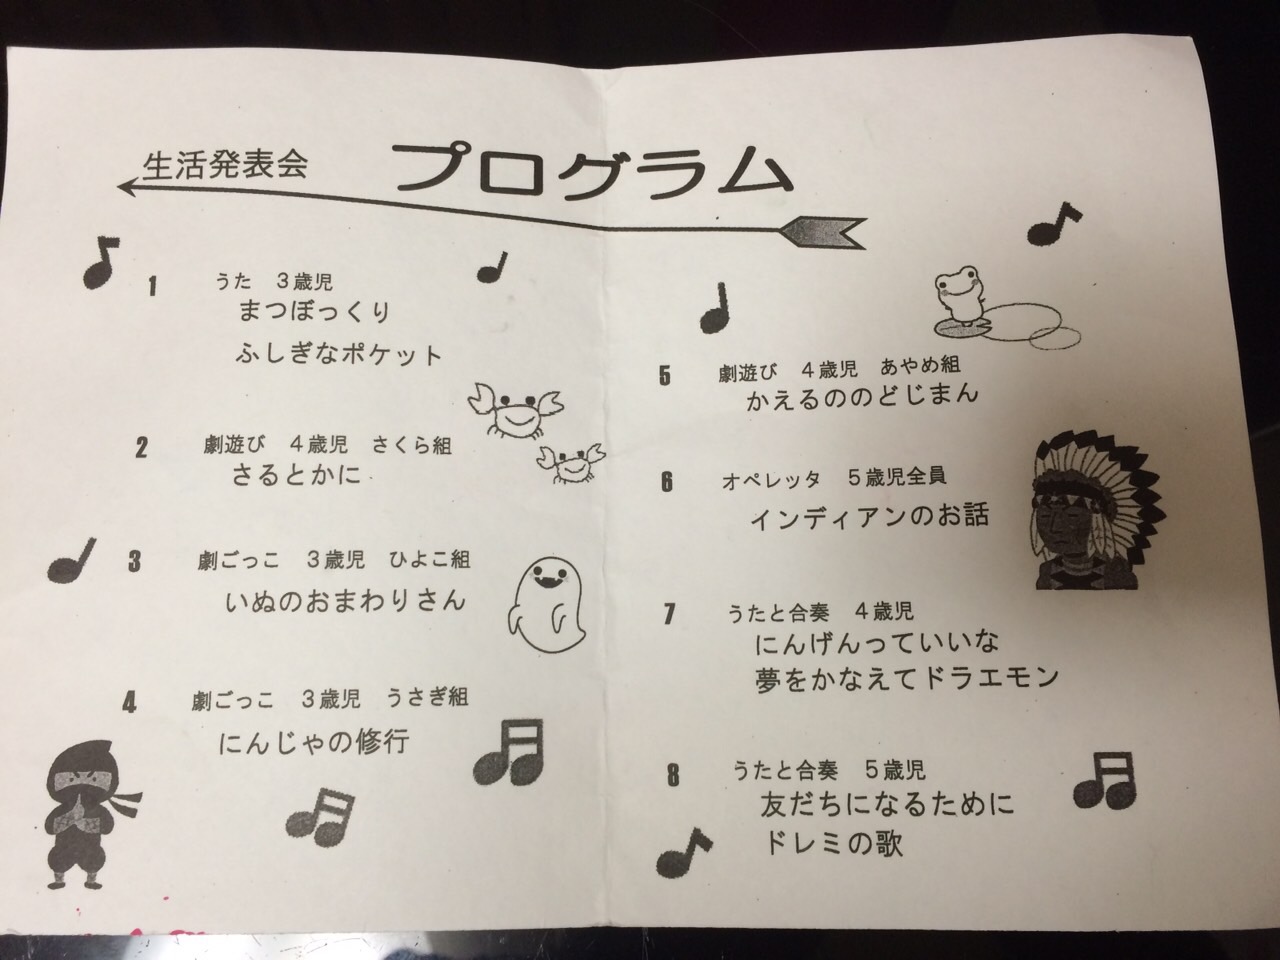 生活発表会　プログラム
1　うた　３歳児
まつぼっくり
ふしぎなポケット
2　劇遊び　４歳児　さくら組
さるとかに
3　劇ごっこ　３歳児　ひよこ組
いぬのおまわりさん
4　劇ごっこ　３歳児　うさぎ組
にんじゃの修行
5　劇遊び　４歳児　あやめ組
かえるののどじまん
6　オペレッタ　５歳児全員
インディアンのお話
7　うたと合奏　４歳児
にんげんっていいな
夢をかなえてドラエモン
8　うたと合奏　５歳児
友だちになるために
ドレミの歌